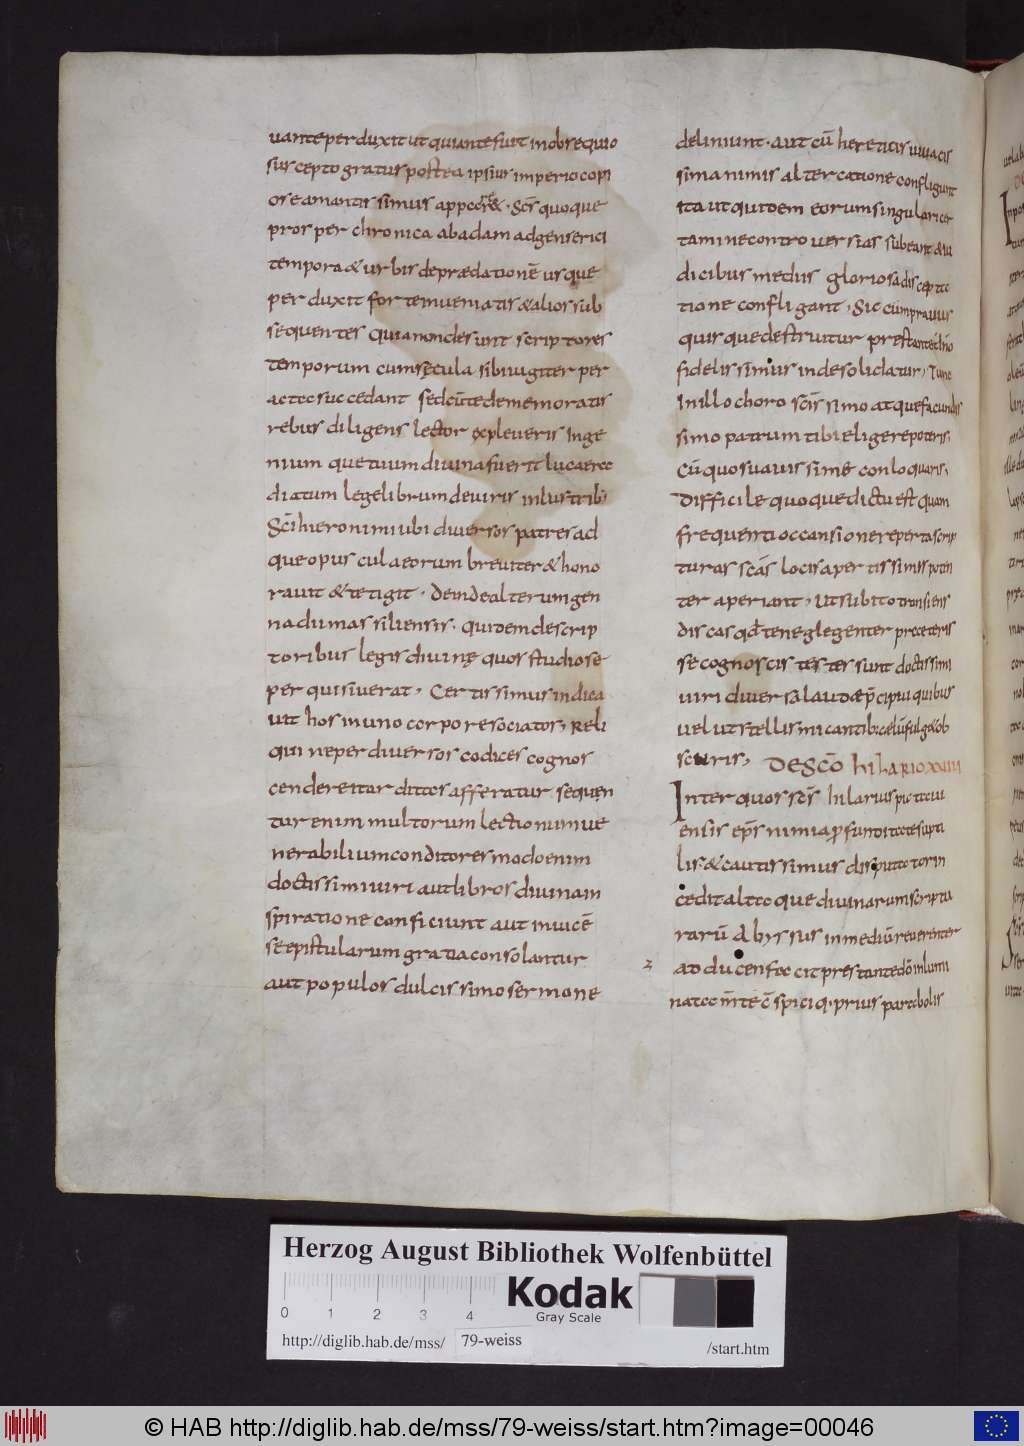 uanteperduxit ut qui ante fuit in obsequio
susceptogratus postea ipsius imperio copi
ose amantissimus appcareret&. Scs quoque
prosper chronica ab adam ad genserici
tempora & urbis deprædationē usque
perduxit forte inuenia tis & alios sub
sequentes quia non desunt scriptores
temporum cum sęcula sibi iugiter per
acta succedant sed cū te de memoratis
rebus diligens lector expleueris inge
nium que tuum diuina fuerit luce ra
diatum lege librum de uiris inlustrib;
Sci hieronimi ubi diuersos patres ad
que opuscula eorum breuiter & hono
rauit & tetigit. Deinde alterum gen
nadii massiliensis. qui idem de scrip
toribus legis diuinę quos studiose
perquisiuerat, Certissimus indica
uit hos in uno corpore sociatos, Reli
qui ne per diuersos codices cognos
cenda tarditas afferatur sequen
tur enim multorum lectionum ue
nerabilium conditores modo enim
doctissimi uiri aut libros diuina in
spiratione conficiunt aut inuicē
se epistularum gratia consolantur
aut populos dulcissimo sermone
deliniunt. aut cū hereticis uiuacis
sima nimis altercatione confligunt
ita ut quidem eorum singulari cer
tamine controuersias subeant & iu
dicibus medus gloriosa discepta
tione confligant, Sic cum prauus
quisque destruitur prestante dn̄o
fidelissimus inde solidatur, Tunc
In illo choro scīssimo atque facundis
simo patrum tibi eligere poteris,
Cū quo suauissime conloquaris,
Difficile quoque dictu est quam
frequenti occansione reperta scrip
turas scās locis apertissimis poten
ter aperiant, Ut subito transiens
discas qd̄ te neglegenter preteris
se cognoscis testes sunt doctissimi
uiri diuersa laudæ p̄cipui quibus
uelut stellis micantib: celū fulg& ob
scuris, DE SCŌ hiLARIO XXIII
Inter quos scs̄ hilarius pictaui
ensis ep̄s nimia p̄funditate supti
lis. & cautissimus disputator in
cedit altaque diuinarum scriptu
rarū abyssus in mediū reuerenter
adducens facit prestante dō inlumi
nata mēte c̄spici q. prius parabolis
Herzog August Bibliothek Wolfenbüttel
0 1 2 3 4
Kodak
Gray Scale
http://diglib.hab.de/mss/ 79-weiss /start.htm
© HAB http://diglib.hab.de/mss/79-weiss/start.htm?image=00046